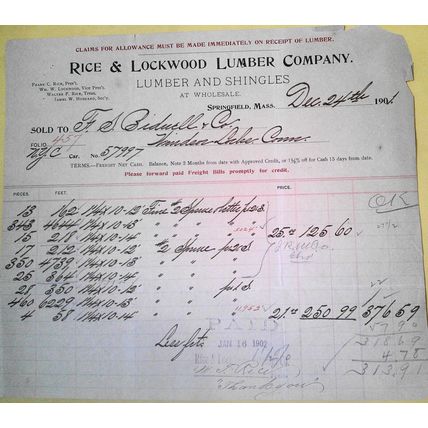 CLAIMS FOR ALLOWANCE MUST BE MADE IMMEDIATELY ON RECEIPT OF LUMBER.
RICE & LOCKWOOD LUMBER COMPANY.
LUMBER AND SHINGLES
AT WHOLESALE.
FRANK C. RICE, PRES'T.
WM. W. LOCKWOOD, VICE PRES'T.
WALTER F. RICE, TREAS.
JAMES W. HUBBARD, SEC'Y.
SPRINGFIELD, MASS. Dec. 24th 1901.
SOLD TO F. S. Bidwell & Co
FOLIO 457 Windsor Locks Conn.
N.Y.C. Car. No. 57997
TERMS.—FREIGHT NET CASH. Balance, Note 2 Months from date with Approved Credit, or 1½% off for Cash 15 days from date.
Please forward paid Freight Bills promptly for credit.
PIECES. FEET. PRICE.
OK
13 162 1¼x10-12' Fine #2 Spruce p2s
343 4644 1¼x10-13' " " "
15 218 1¼x10-14' " " " 5024 25.00 125 60
17 212 1¼x10-12' #2 Spruce p2s
350 4739 1¼x10-13' " " "
25 364 1¼x10-14' " " "
28 350 1¼x10-12' " " p1s
460 6229 1¼x10-13' " " "
4 58 1¼x10-14' " " " 11952 21.00 250 99 376 59
57 90
318 69
4 78
313 91
PAID
JAN 16 1902
"Thank you"